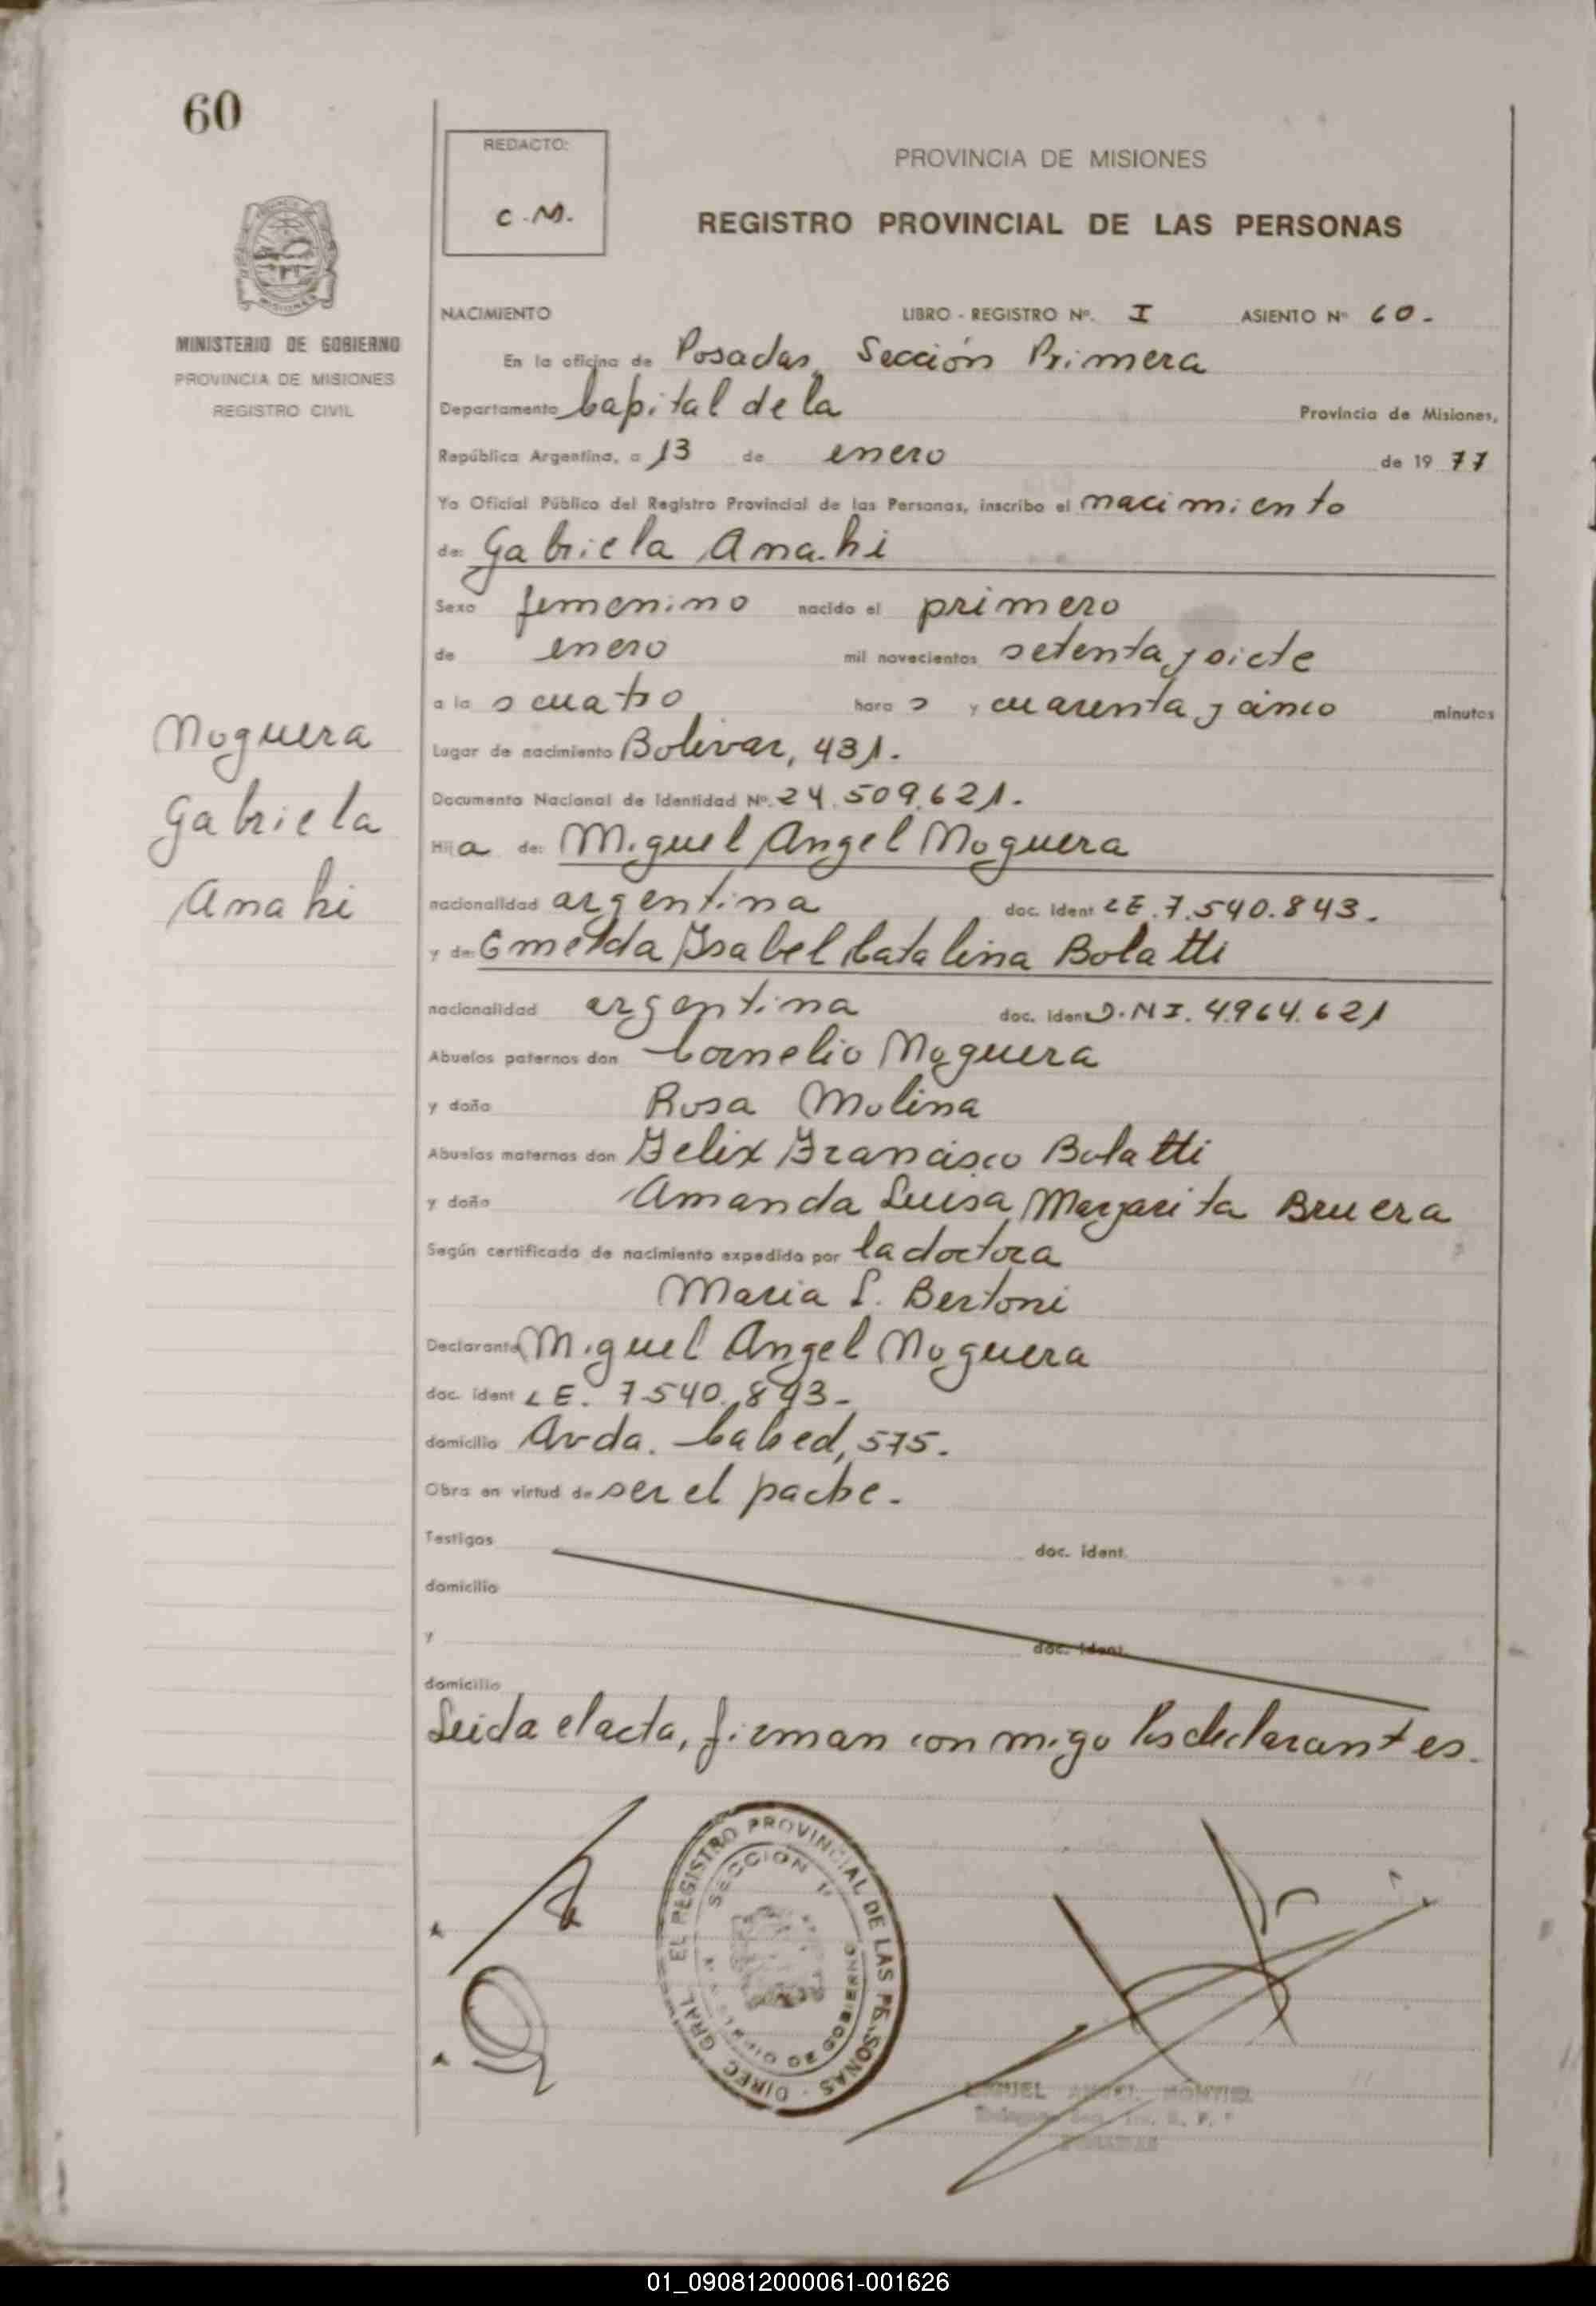 60
REDACTO:
C.M.
PROVINCIA DE MISIONES
REGISTRO PROVINCIAL DE LAS PERSONAS
MINISTERIO DE GOBIERNO
PROVINCIA DE MISIONES
REGISTRO CIVIL
NACIMIENTO LIBRO - REGISTRO Nº. I ASIENTO Nº 60.-
En la oficina de Posadas, Sección Primera
Departamento Capital de la Provincia de Misiones,
República Argentina, a 13 de enero de 1977
Yo Oficial Público del Registro Provincial de las Personas, inscribo el nacimiento
de: Gabriela Anahi
Sexo femenino nacido el primero
de enero mil novecientos setenta y siete
a la s cuatro hora s y cuarenta y cinco minutos
Noguera
Gabriela
Anahi
Lugar de nacimiento Bolivar, 431.
Documento Nacional de Identidad Nº. 24.509.621.
Hija de: Miguel Angel Noguera
nacionalidad argentina doc. ident LE. 7.540.843.-
y de: Emelda Isabel Catalina Bolatti
nacionalidad argentina doc. ident D.N.I. 4.964.621
Abuelos paternos don Cornelio Noguera
y doña Rosa Molina
Abuelos maternos don Felix Francisco Bolatti
y doña Amanda Luisa Margarita Bruera
Según certificado de nacimiento expedido por la doctora
Maria L. Bertoni
Declarante Miguel Angel Noguera
doc. ident LE. 7.540.843-
domicilio Avda. Cabred, 575.
Obra en virtud de ser el padre.
Testigos doc. ident.
domicilio
y doc. ident.
domicilio
Leida el acta, firman conmigo los declarantes.
DIREC. GRAL. EL REGISTRO PROVINCIAL DE LAS PERSONAS
SECCION 1ª
MIGUEL ANGEL MONTIEL
POSADAS
01_090812000061-001626